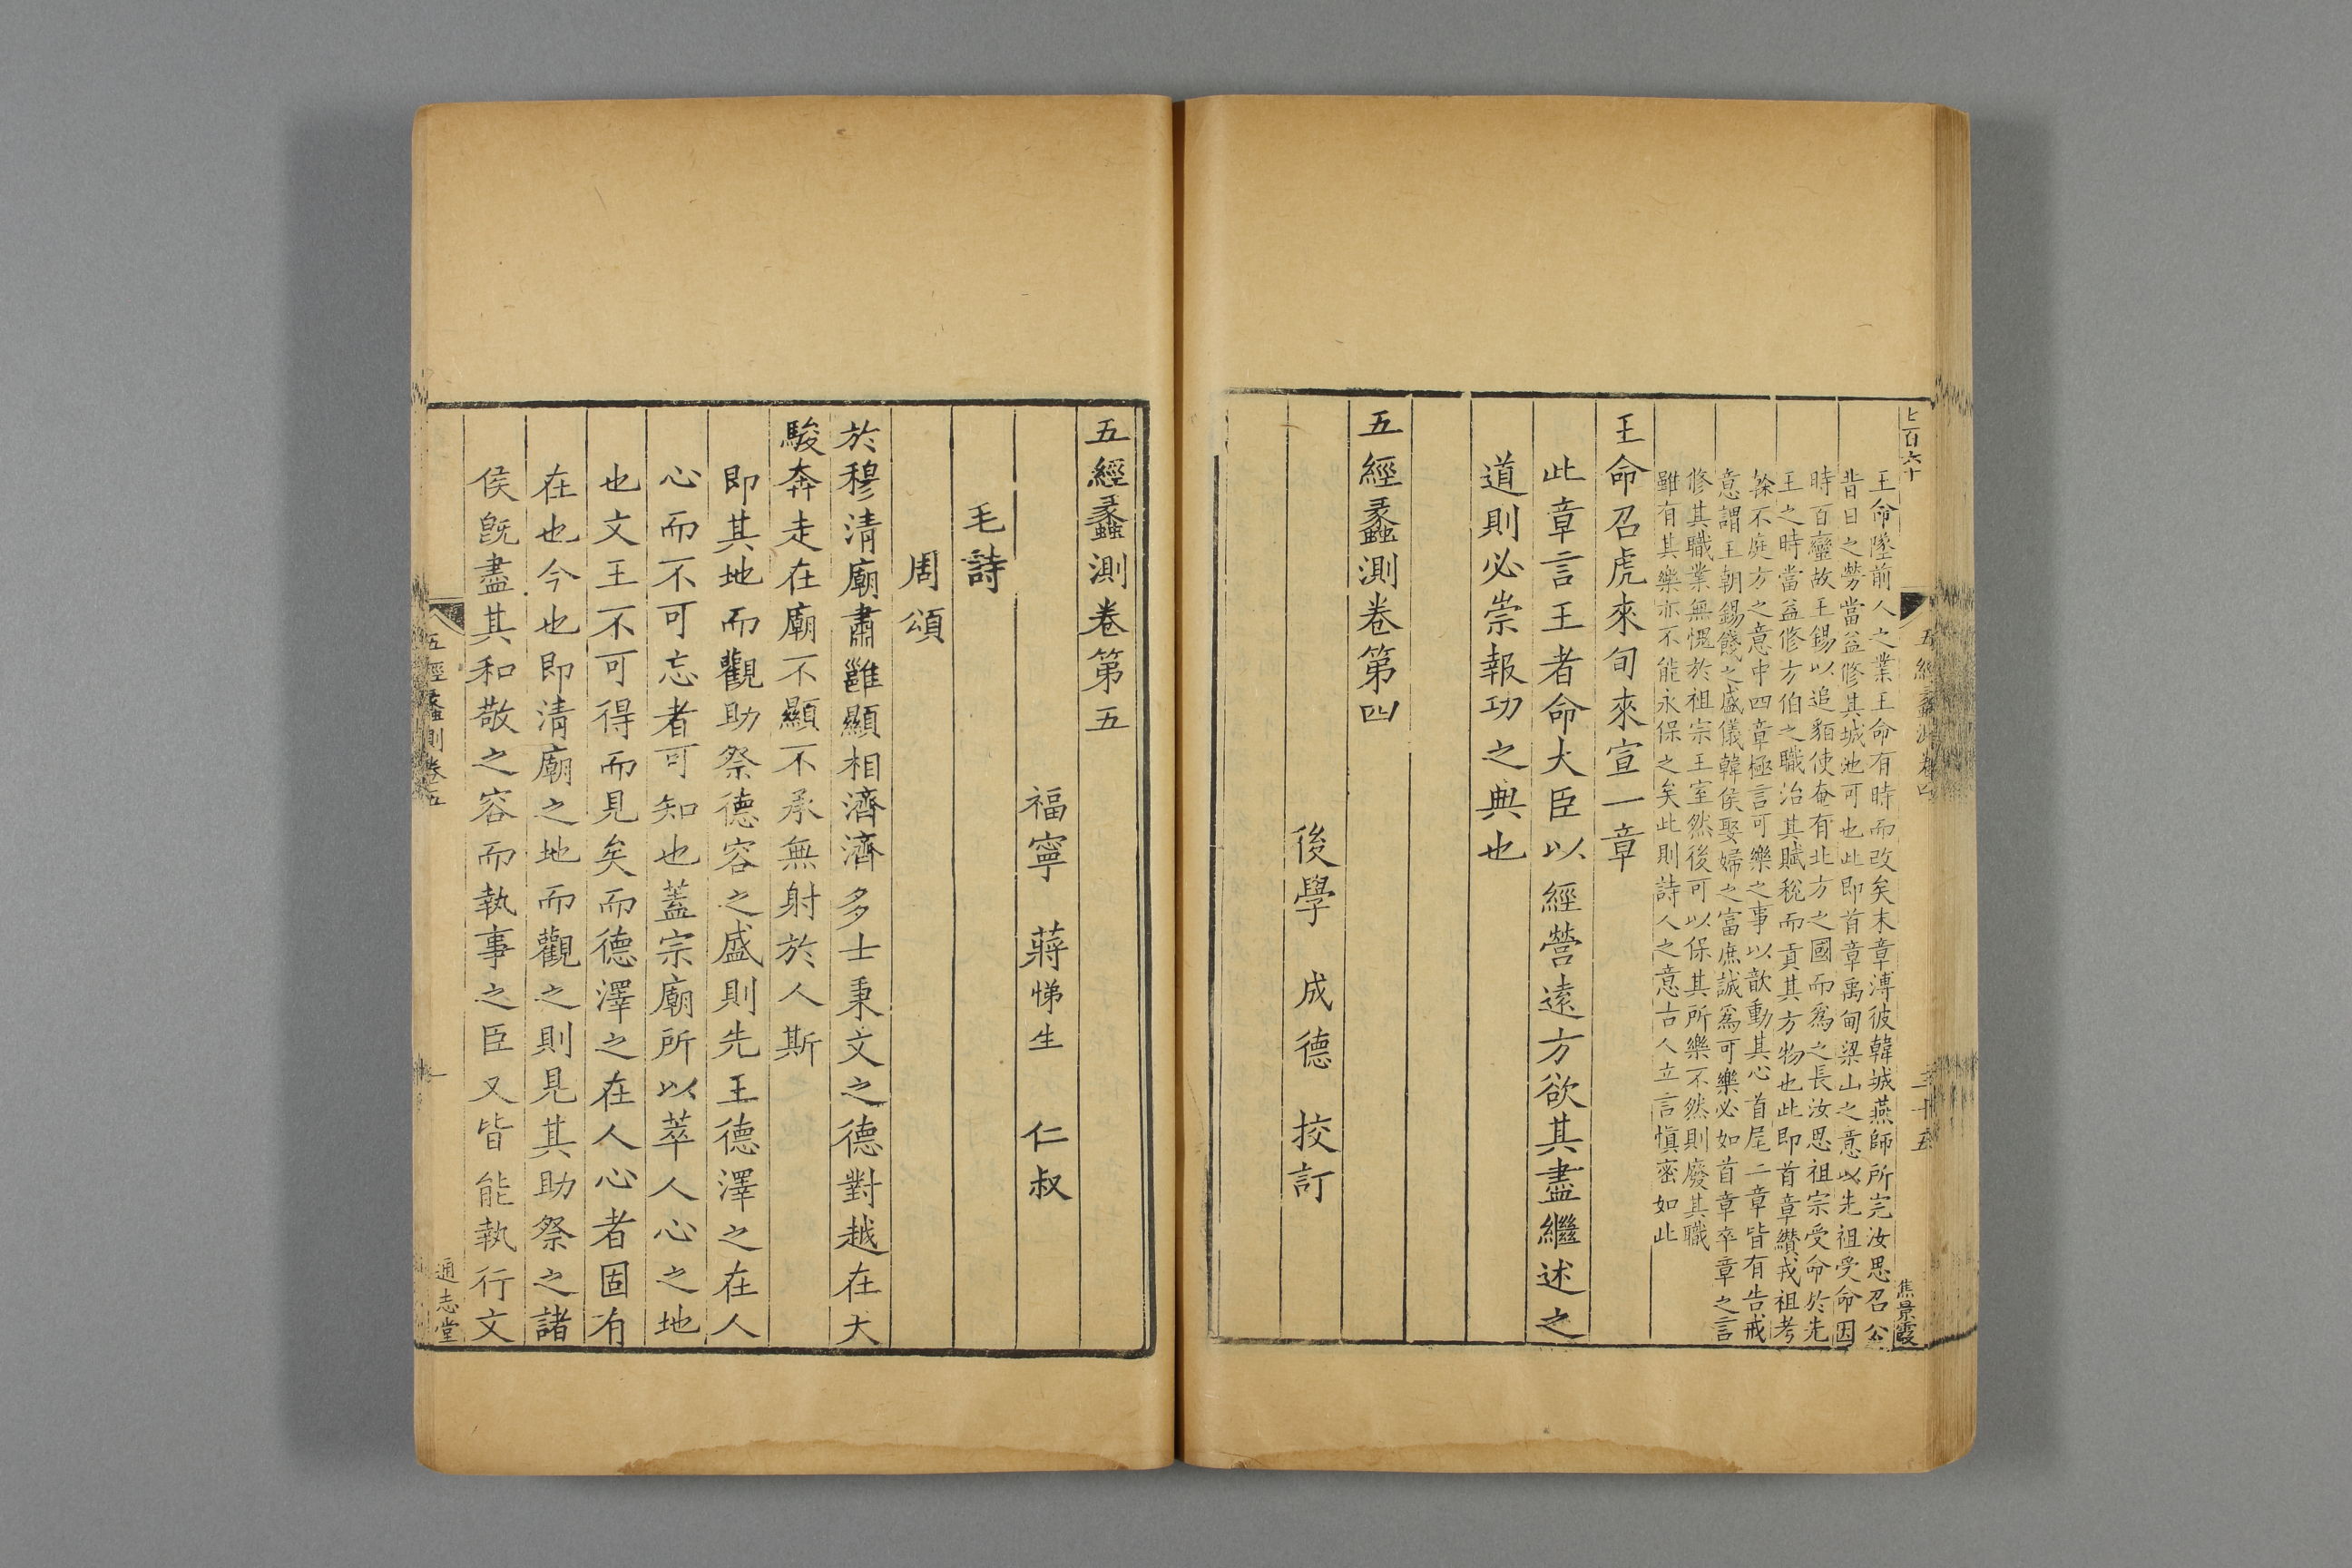 七百六十
王命墜前人之業王命有時而改矣末章溥彼韓城燕師所完汝思召公
昔日之勞當益修其城池可也此即首章禹甸梁山之意以先祖受命因
時百蠻故王錫以追貊使奄有北方之國而為之長汝思祖宗受命於先
王之時當益修方伯之職治其賦稅而貢其方物也此即首章纘戎祖考
榦不庭方之意中四章極言可樂之事以歆動其心首尾二章皆有告戒
意謂王朝錫餞之盛儀韓侯娶婦之富庶誠為可樂必如首章卒章之言
修其職業無愧於祖宗王室然後可以保其所樂不然則廢其職
雖有其樂亦不能永保之矣此則詩人之意古人立言愼密如此
王命召虎來旬來宣一章
此章言王者命大臣以經營遠方欲其盡繼述之
道則必崇報功之典也
五經蠡測卷第四
後學 成德 挍訂
五經蠡測卷四
三十五
焦景霞
五經蠡測卷第五
福寧 蔣悌生 仁叔
毛詩
周頌
於穆清廟肅雝顯相濟濟多士秉文之德對越在天
駿奔走在廟不顯不承無射於人斯
即其地而觀助祭德容之盛則先王德澤之在人
心而不可忘者可知也蓋宗廟所以萃人心之地
也文王不可得而見矣而德澤之在人心者固有
在也今也即清廟之地而觀之則見其助祭之諸
侯旣盡其和敬之容而執事之臣又皆能執行文
五經蠡測卷五
一
通志堂